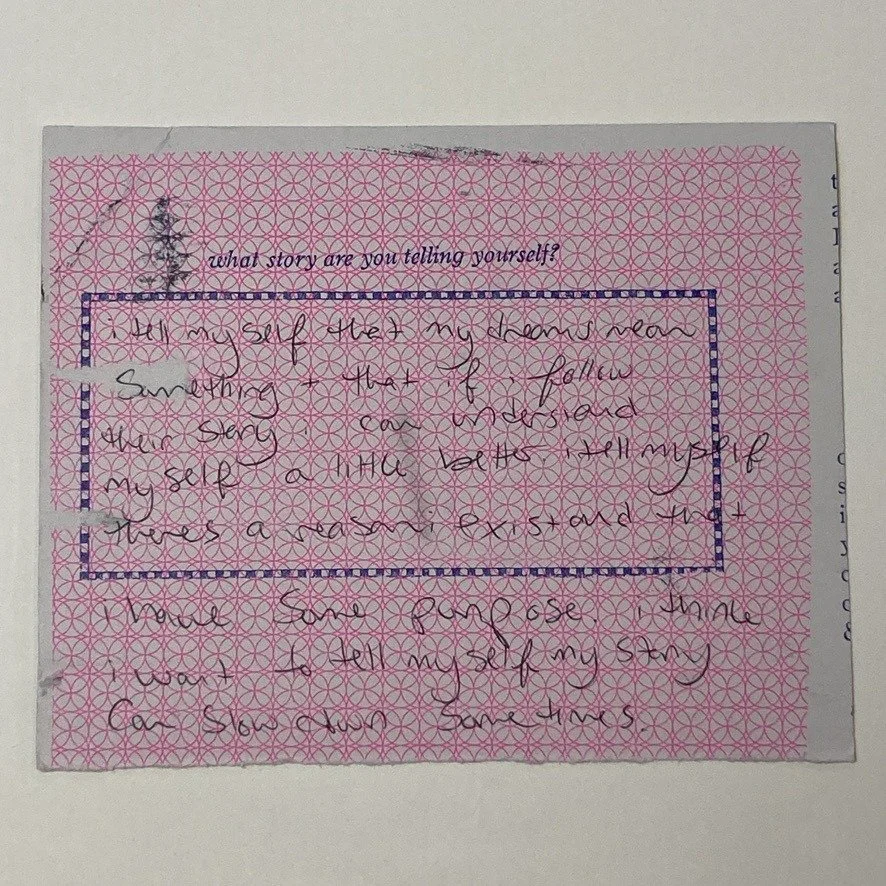 what story are you telling yourself?
i tell myself that my dreams mean
something + that if i follow
their story i can understand
myself a little better. i tell myself
theres a reason i exist and that
i have some purpose. i think
i want to tell myself my story
can slow down sometimes.